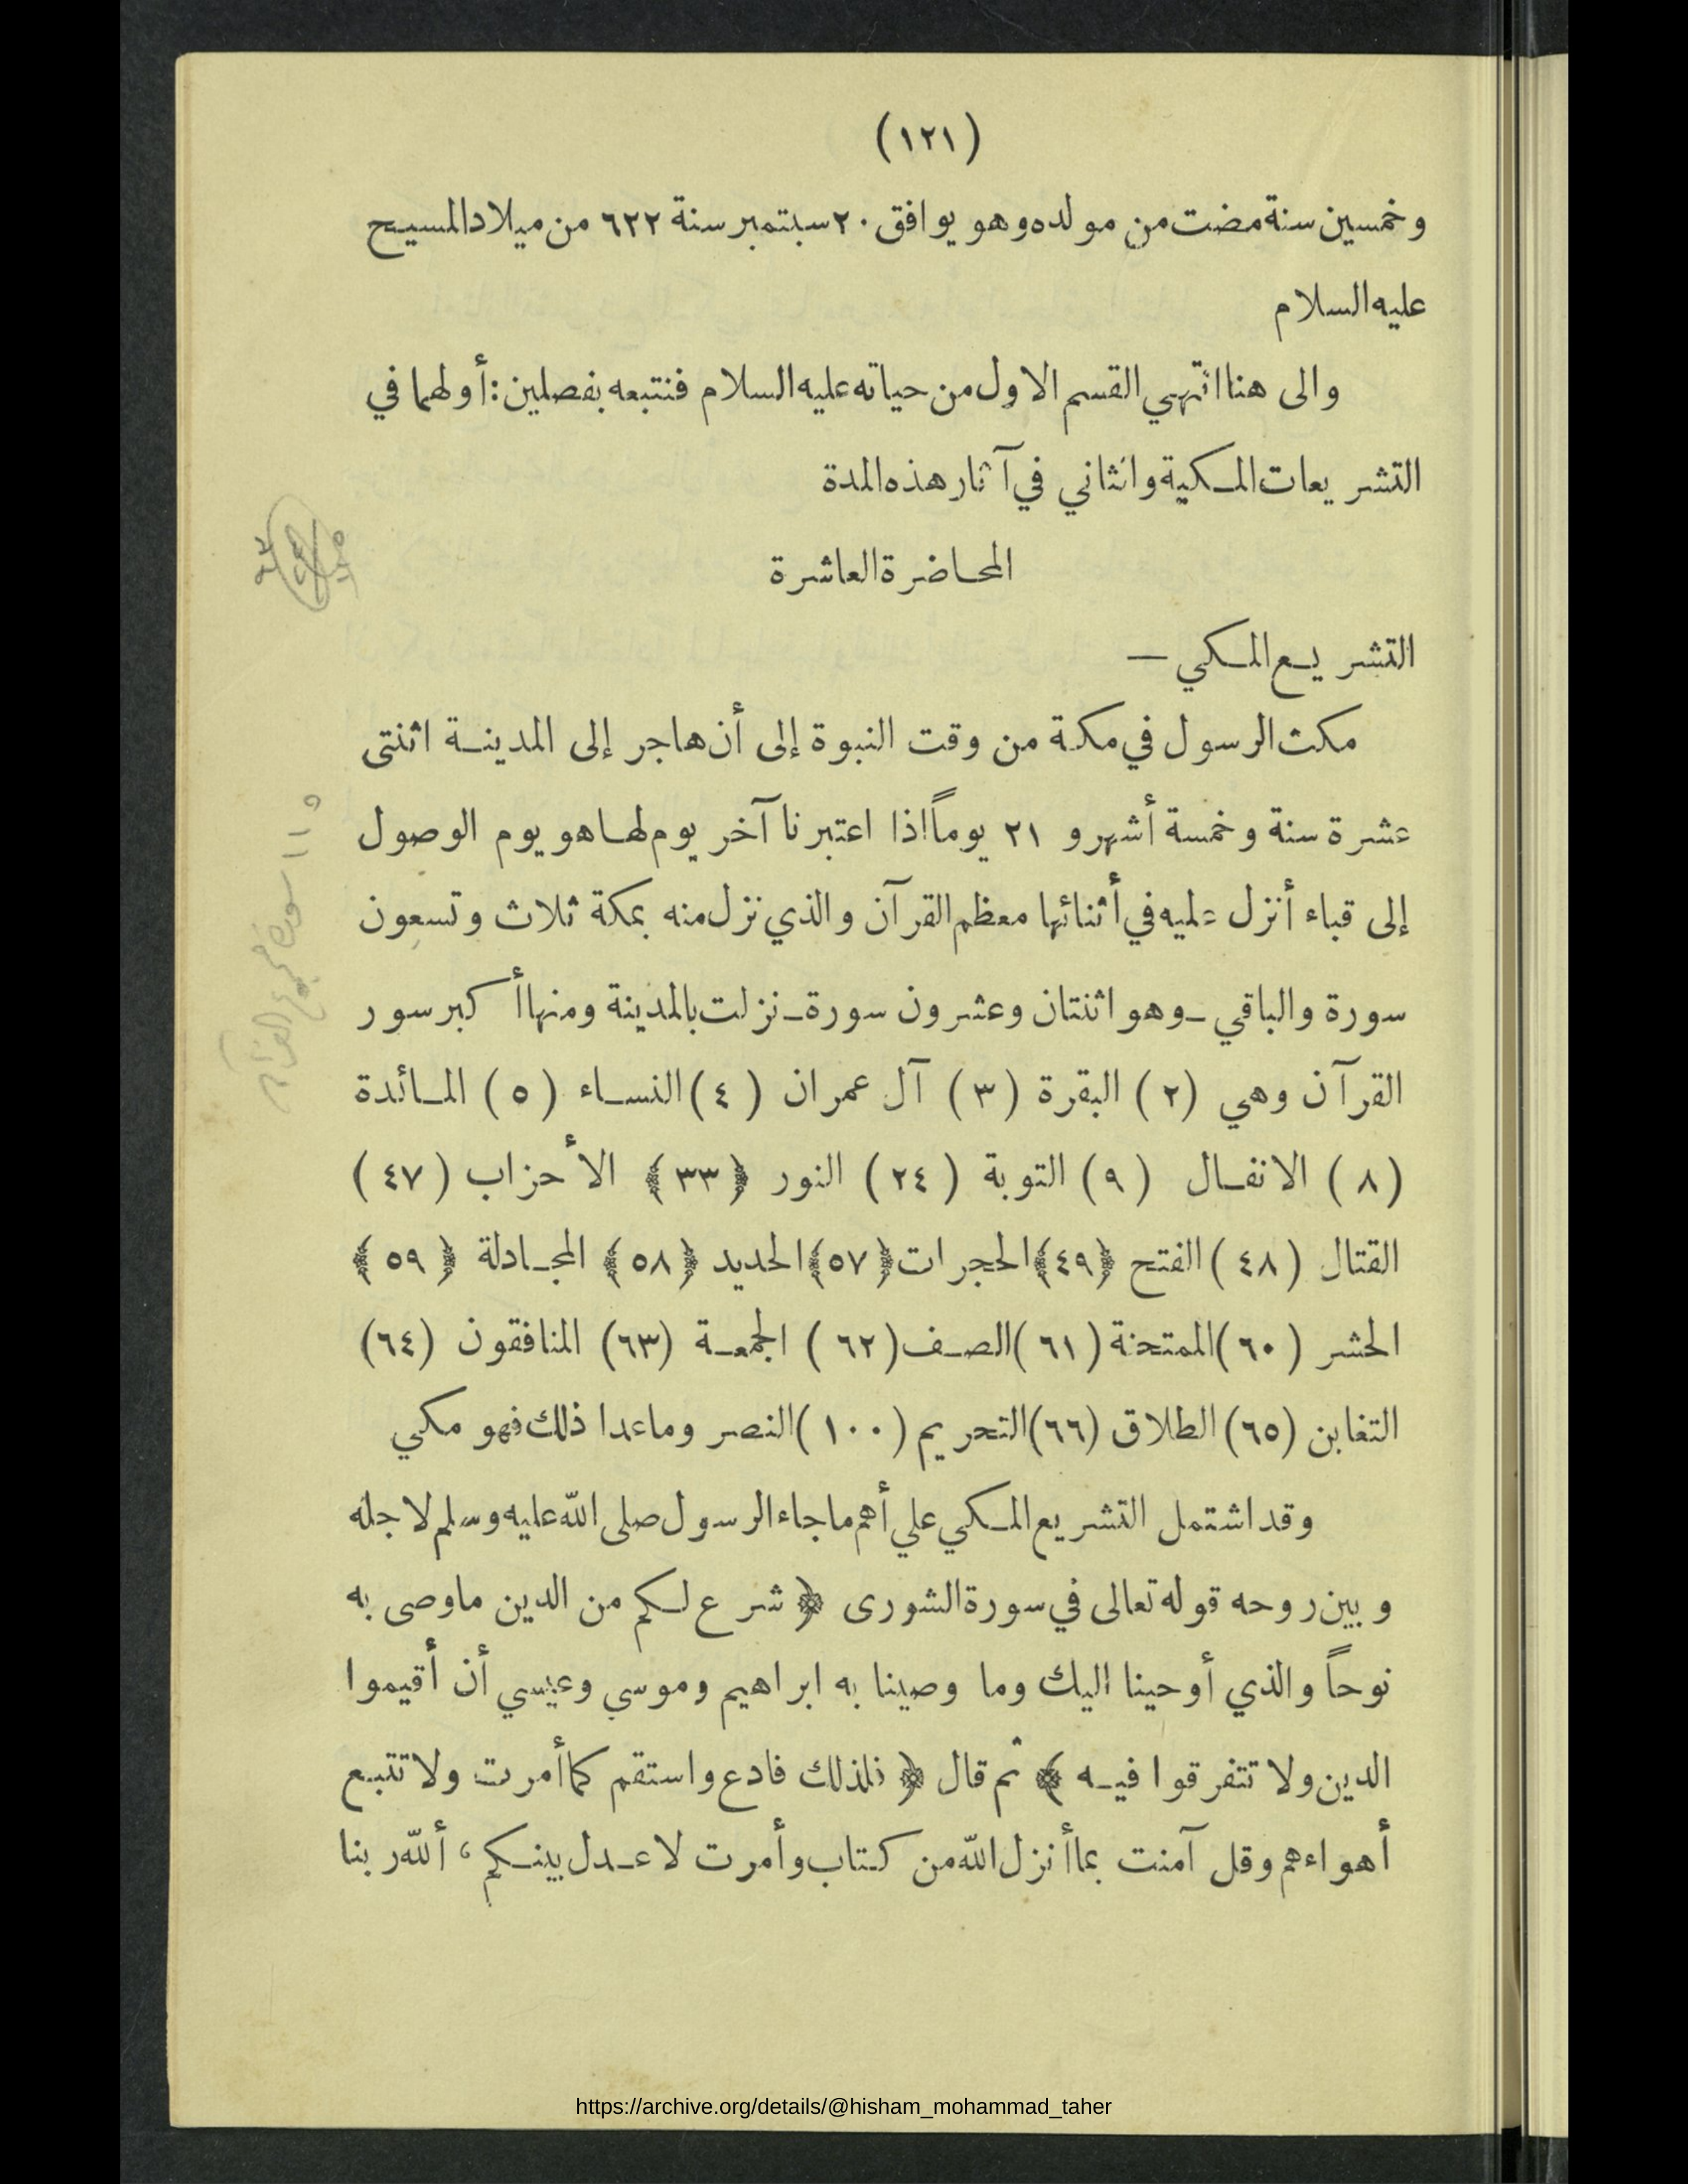 (١٢١)
وخمسين سنة مضت من مولده وهو يوافق ٢٠ سبتمبر سنة ٦٢٢ من ميلاد المسيح
عليه السلام
والى هنا انتهي القسم الاول من حياته عليه السلام فنتبعه بفصلين : أولهما في
التشريعات المكية والثاني في آثار هذه المدة
المحاضرة العاشرة
التشريع المكي —
مكث الرسول في مكة من وقت النبوة إلى أن هاجر إلى المدينة اثنتى
عشرة سنة وخمسة أشهر و ٢١ يوماً اذا اعتبرنا آخر يوم لها هو يوم الوصول
إلى قباء أنزل عليه في أثنائها معظم القرآن والذي نزل منه بمكة ثلاث وتسعون
سورة والباقي ـ وهو اثنتان وعشرون سورة ـ نزلت بالمدينة ومنها أكبر سور
القرآن وهي (٢) البقرة (٣) آل عمران (٤) النساء (٥) المائدة
(٨) الانفال (٩) التوبة (٢٤) النور ﴿٣٣﴾ الأحزاب (٤٧)
القتال (٤٨) الفتح ﴿٤٩﴾ الحجرات ﴿٥٧﴾ الحديد ﴿٥٨﴾ المجادلة ﴿٥٩﴾
الحشر (٦٠) الممتحنة (٦١) الصف (٦٢) الجمعة (٦٣) المنافقون (٦٤)
التغابن (٦٥) الطلاق (٦٦) التحريم (١٠٠) النصر وماعدا ذلك فهو مكي
وقد اشتمل التشريع المكي علي أهم ماجاء الرسول صلى الله عليه وسلم لاجله
وبين روحه قوله تعالى في سورة الشورى ﴿ شرع لكم من الدين ماوصى به
نوحاً والذي أوحينا اليك وما وصينا به ابراهيم وموسي وعيسي أن أقيموا
الدين ولا تتفرقوا فيه ﴾ ثم قال ﴿ فلذلك فادع واستقم كما أمرت ولا تتبع
أهواءهم وقل آمنت بما أنزل الله من كتاب وأمرت لاعدل بينكم ، ألله ربنا
١١٥ سورة مجموع القرآن
https://archive.org/details/@hisham_mohammad_taher